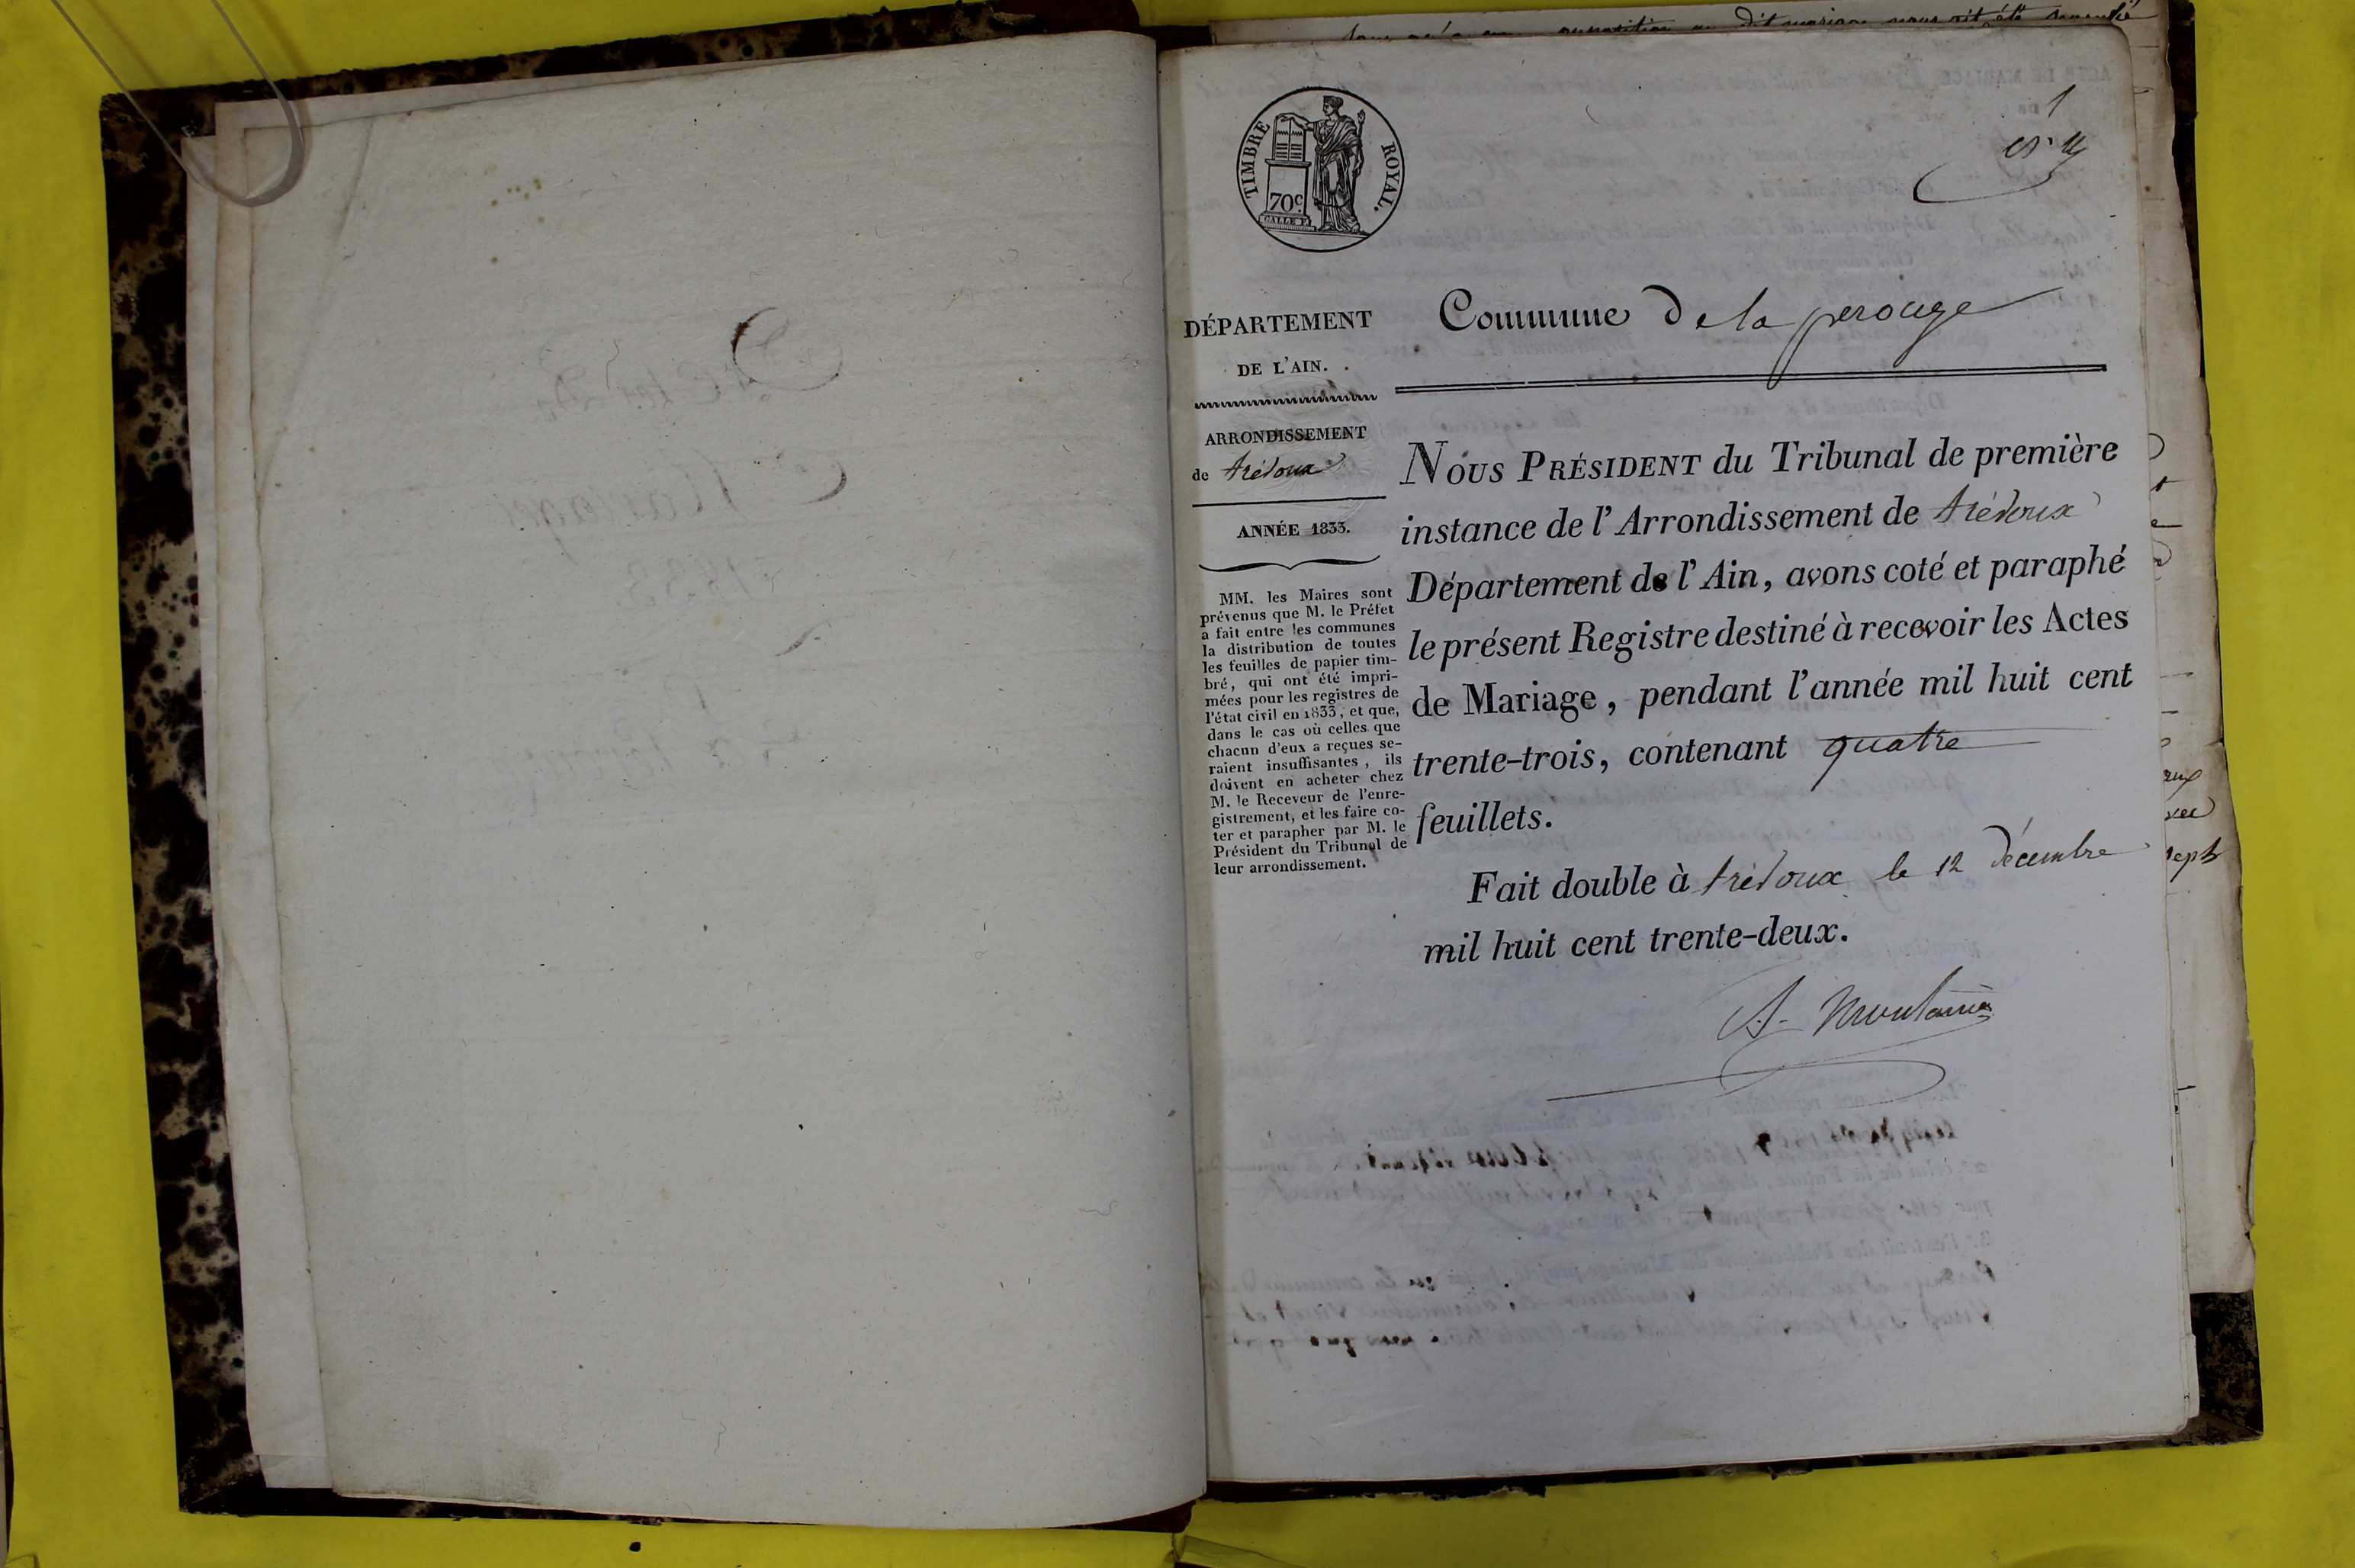 TIMBRE ROYAL.
70c.
1
DÉPARTEMENT
DE L'AIN.
ARRONDISSEMENT
de trévoux
ANNÉE 1833.
MM. les Maires sont
prévenus que M. le Préfet
a fait entre les communes
la distribution de toutes
les feuilles de papier tim-
bré, qui ont été impri-
mées pour les registres de
l'état civil en 1833, et que,
dans le cas où celles que
chacun d'eux a reçues se-
raient insuffisantes, ils
doivent en acheter chez
M. le Receveur de l'enre-
gistrement, et les faire co-
ter et parapher par M. le
Président du Tribunal de
leur arrondissement.
Commune de la perouge
NOUS PRÉSIDENT du Tribunal de première
instance de l'Arrondissement de trévoux
Département de l'Ain, avons coté et paraphé
le présent Registre destiné à recevoir les Actes
de Mariage, pendant l'année mil huit cent
trente-trois, contenant quatre
feuillets.
Fait double à trévoux le 12 décembre
mil huit cent trente-deux.